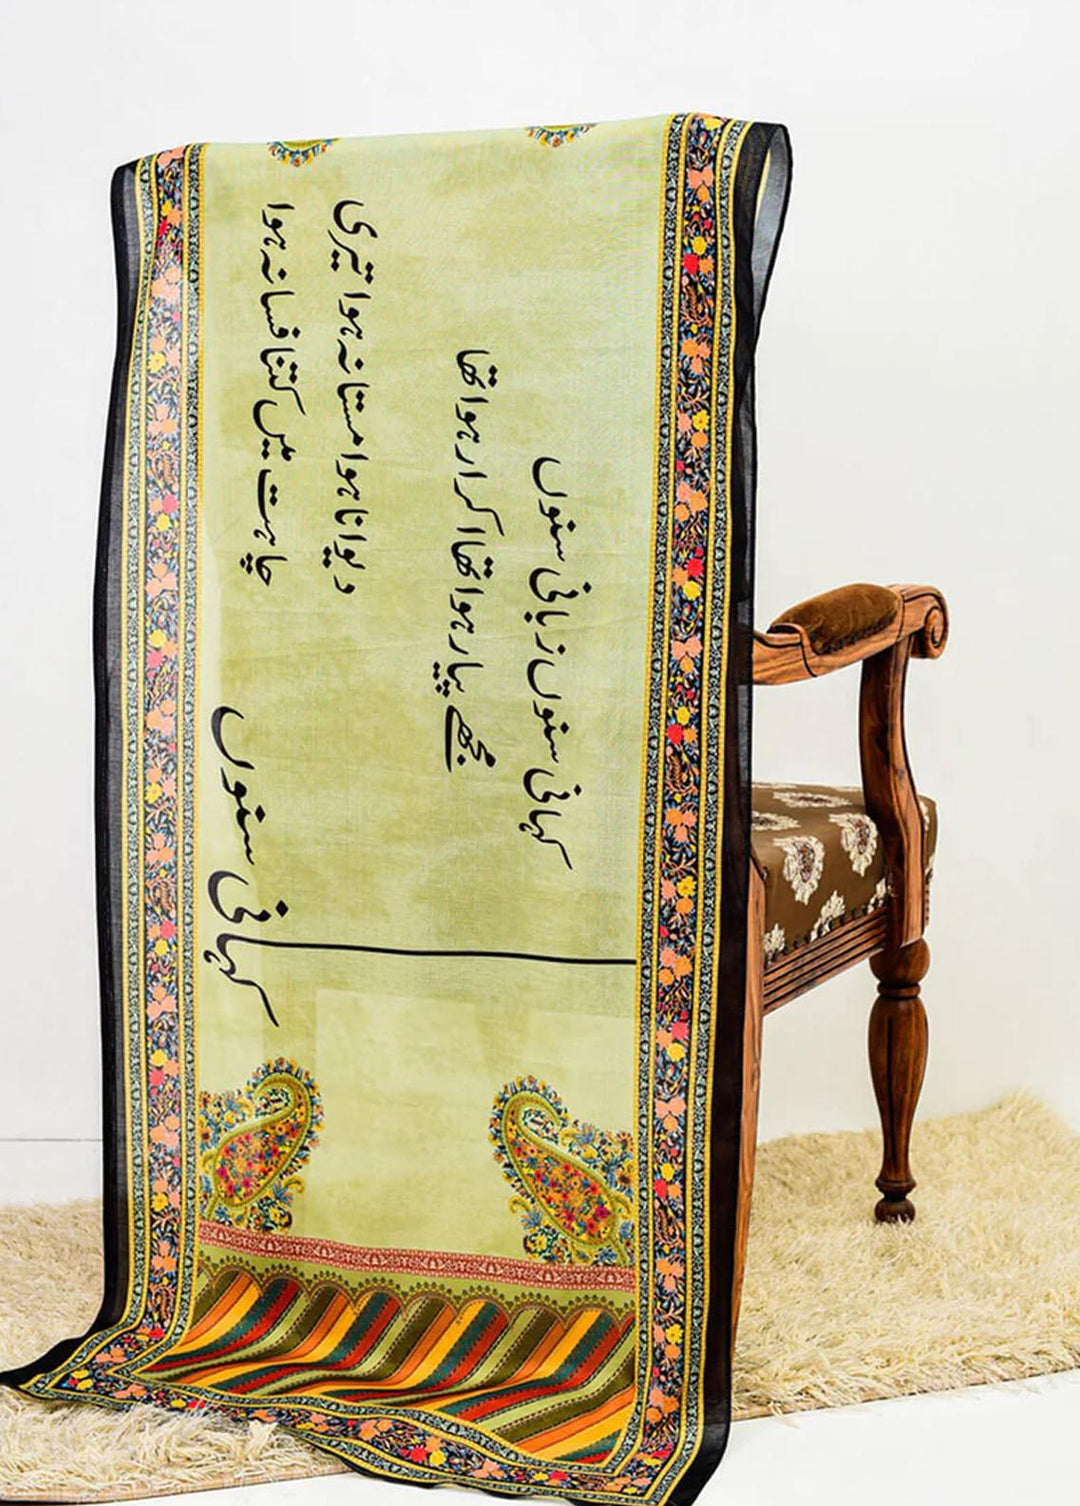 کہانی سنوں زبانی سنوں
مجھے پیار ہوا تھا اکرار ہوا تھا
دیوانا ہوا مستانہ ہوا تیری
چاہت میں کتنا فسانہ ہوا
کہانی سنوں